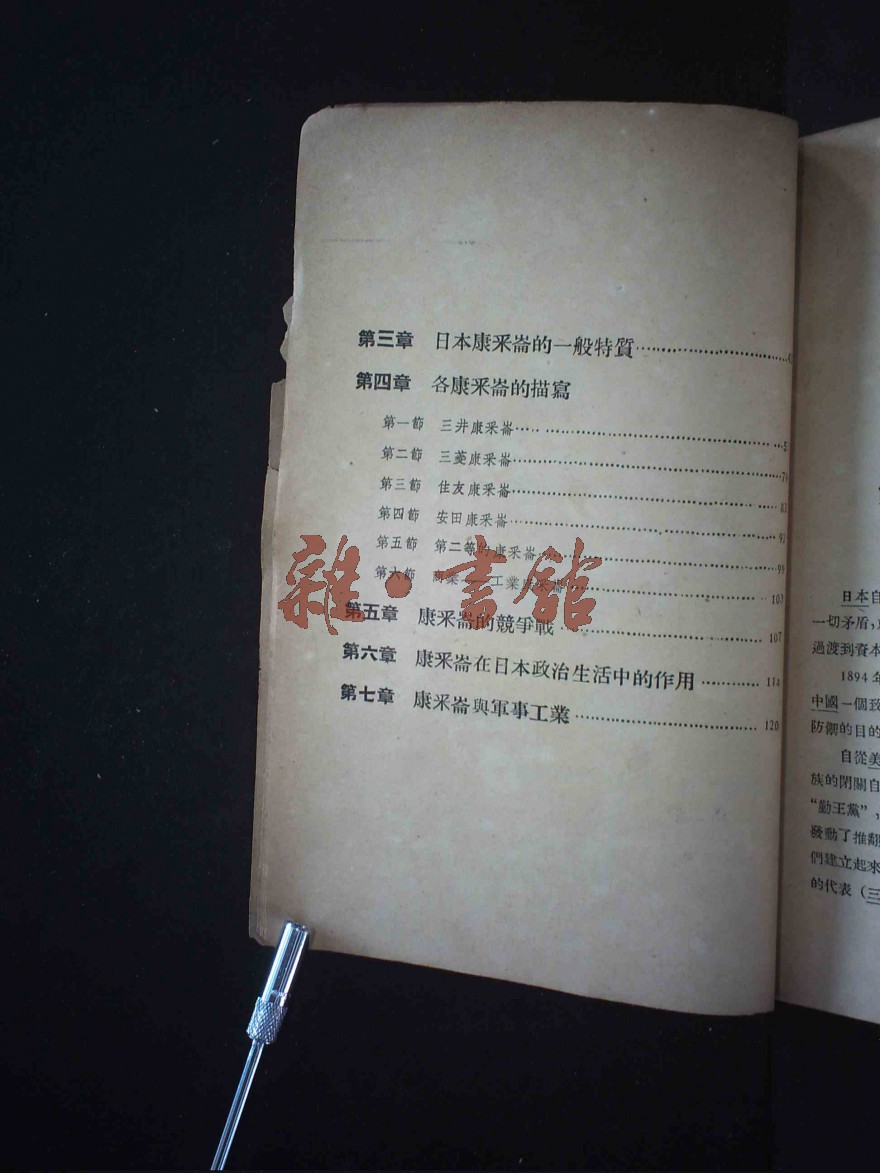 第三章 日本康采崙的一般特質
第四章 各康采崙的描寫
第一節 三井康采崙
第二節 三菱康采崙 79
第三節 住友康采崙 83
第四節 安田康采崙 92
第五節 第二等的康采崙 99
第六節 商業 工業康采崙 103
第五章 康采崙的競爭戰 107
第六章 康采崙在日本政治生活中的作用 114
第七章 康采崙與軍事工業 120
雜·書館
日本自
一切矛盾,
過渡到資本
1894年
中國一個致
防禦的目的
自從美
族的閉關自
“勤王黨”,
發動了推翻
們建立起來
的代表(三